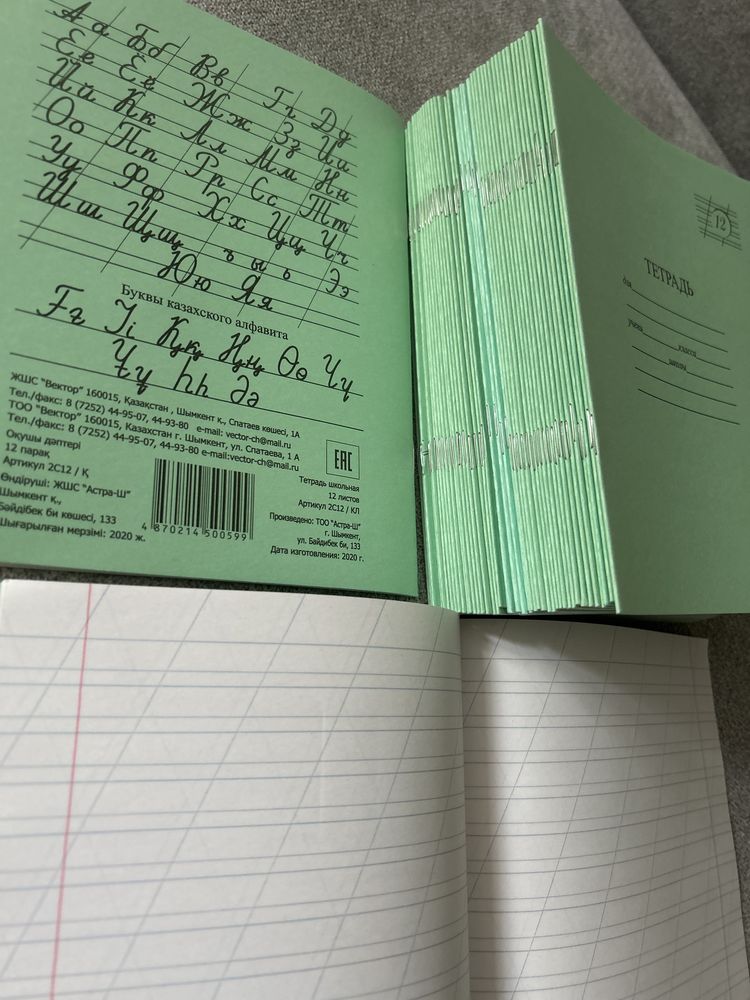 Аа Бб Вв Гг Дд
Ее Ёё Жж Зз Ии
Йй Кк Лл Мм Нн
Оо Пп Рр Сс Тт
Уу Фф Хх Цц Чч
Шш Щщ ъ ы ь Ээ
Юю Яя
Буквы казахского алфавита
Ғғ Іі Ққ Ңң Өө Үү
Ұұ Һһ Әә
ЖШС "Вектор" 160015, Қазақстан , Шымкент қ., Спатаев көшесі, 1А
Тел./факс: 8 (7252) 44-95-07, 44-93-80 e-mail: vector-ch@mail.ru
ТОО "Вектор" 160015, Казахстан г. Шымкент, ул. Спатаева, 1 А
Тел./факс: 8 (7252) 44-95-07, 44-93-80 e-mail:vector-ch@mail.ru
Оқушы дәптері
12 парақ
Артикул 2С12 / Қ
Өндіруші: ЖШС "Астра-Ш"
Шымкент қ.,
Бәйдібек би көшесі, 133
Шығарылған мерзімі: 2020 ж.
4 870214 500599
ЕАС
Тетрадь школьная
12 листов
Артикул 2С12 / КЛ
Произведено: ТОО "Астра-Ш"
г. Шымкент,
ул. Байдибек би, 133
Дата изготовления: 2020 г.
12
ТЕТРАДЬ
для
учени класса
школы